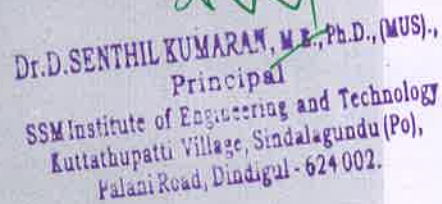 Dr.D.SENTHIL KUMARAN, M.E., Ph.D., (MUS).,
Principal
SSM Institute of Engineering and Technology
Kuttathupatti Village, Sindalagundu (Po),
Palani Road, Dindigul - 624 002.